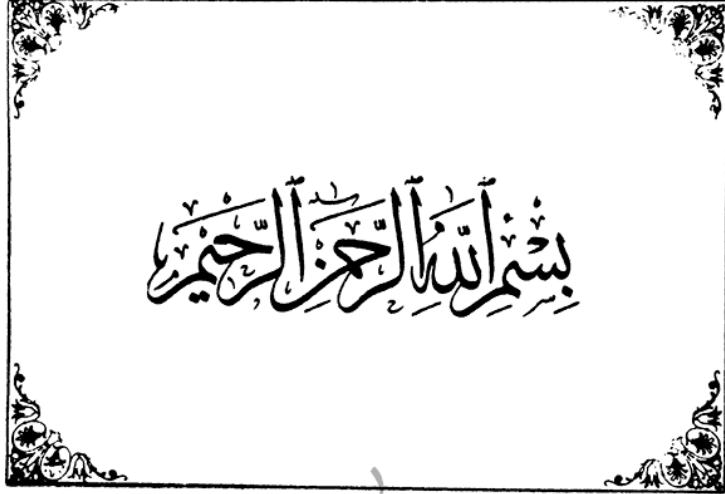 بِسْمِ ٱللَّهِ ٱلرَّحْمَٰنِ ٱلرَّحِيمِ
١